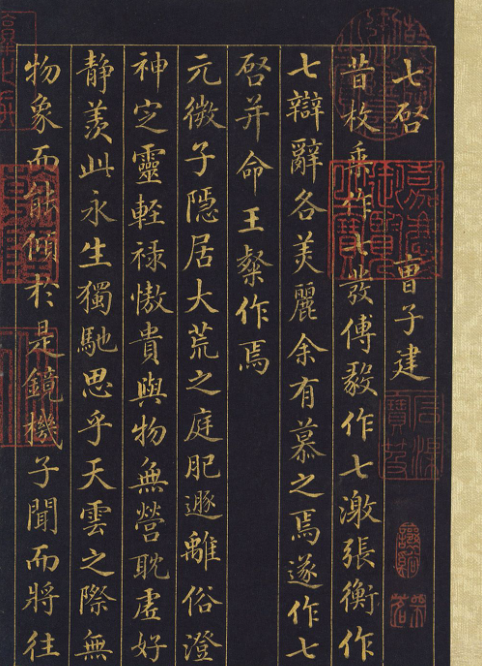 七啓 曹子建
昔枚乘作七發傅毅作七激張衡作
七辯辭各美麗余有慕之焉遂作七
啓并命王粲作焉
元微子隱居大荒之庭肥遯離俗澄
神定靈輕祿傲貴與物無營耽虛好
靜羨此永生獨馳思乎天雲之際無
物象而能傾於是鏡機子聞而將往
嘉慶御覽之寶
石渠寶笈